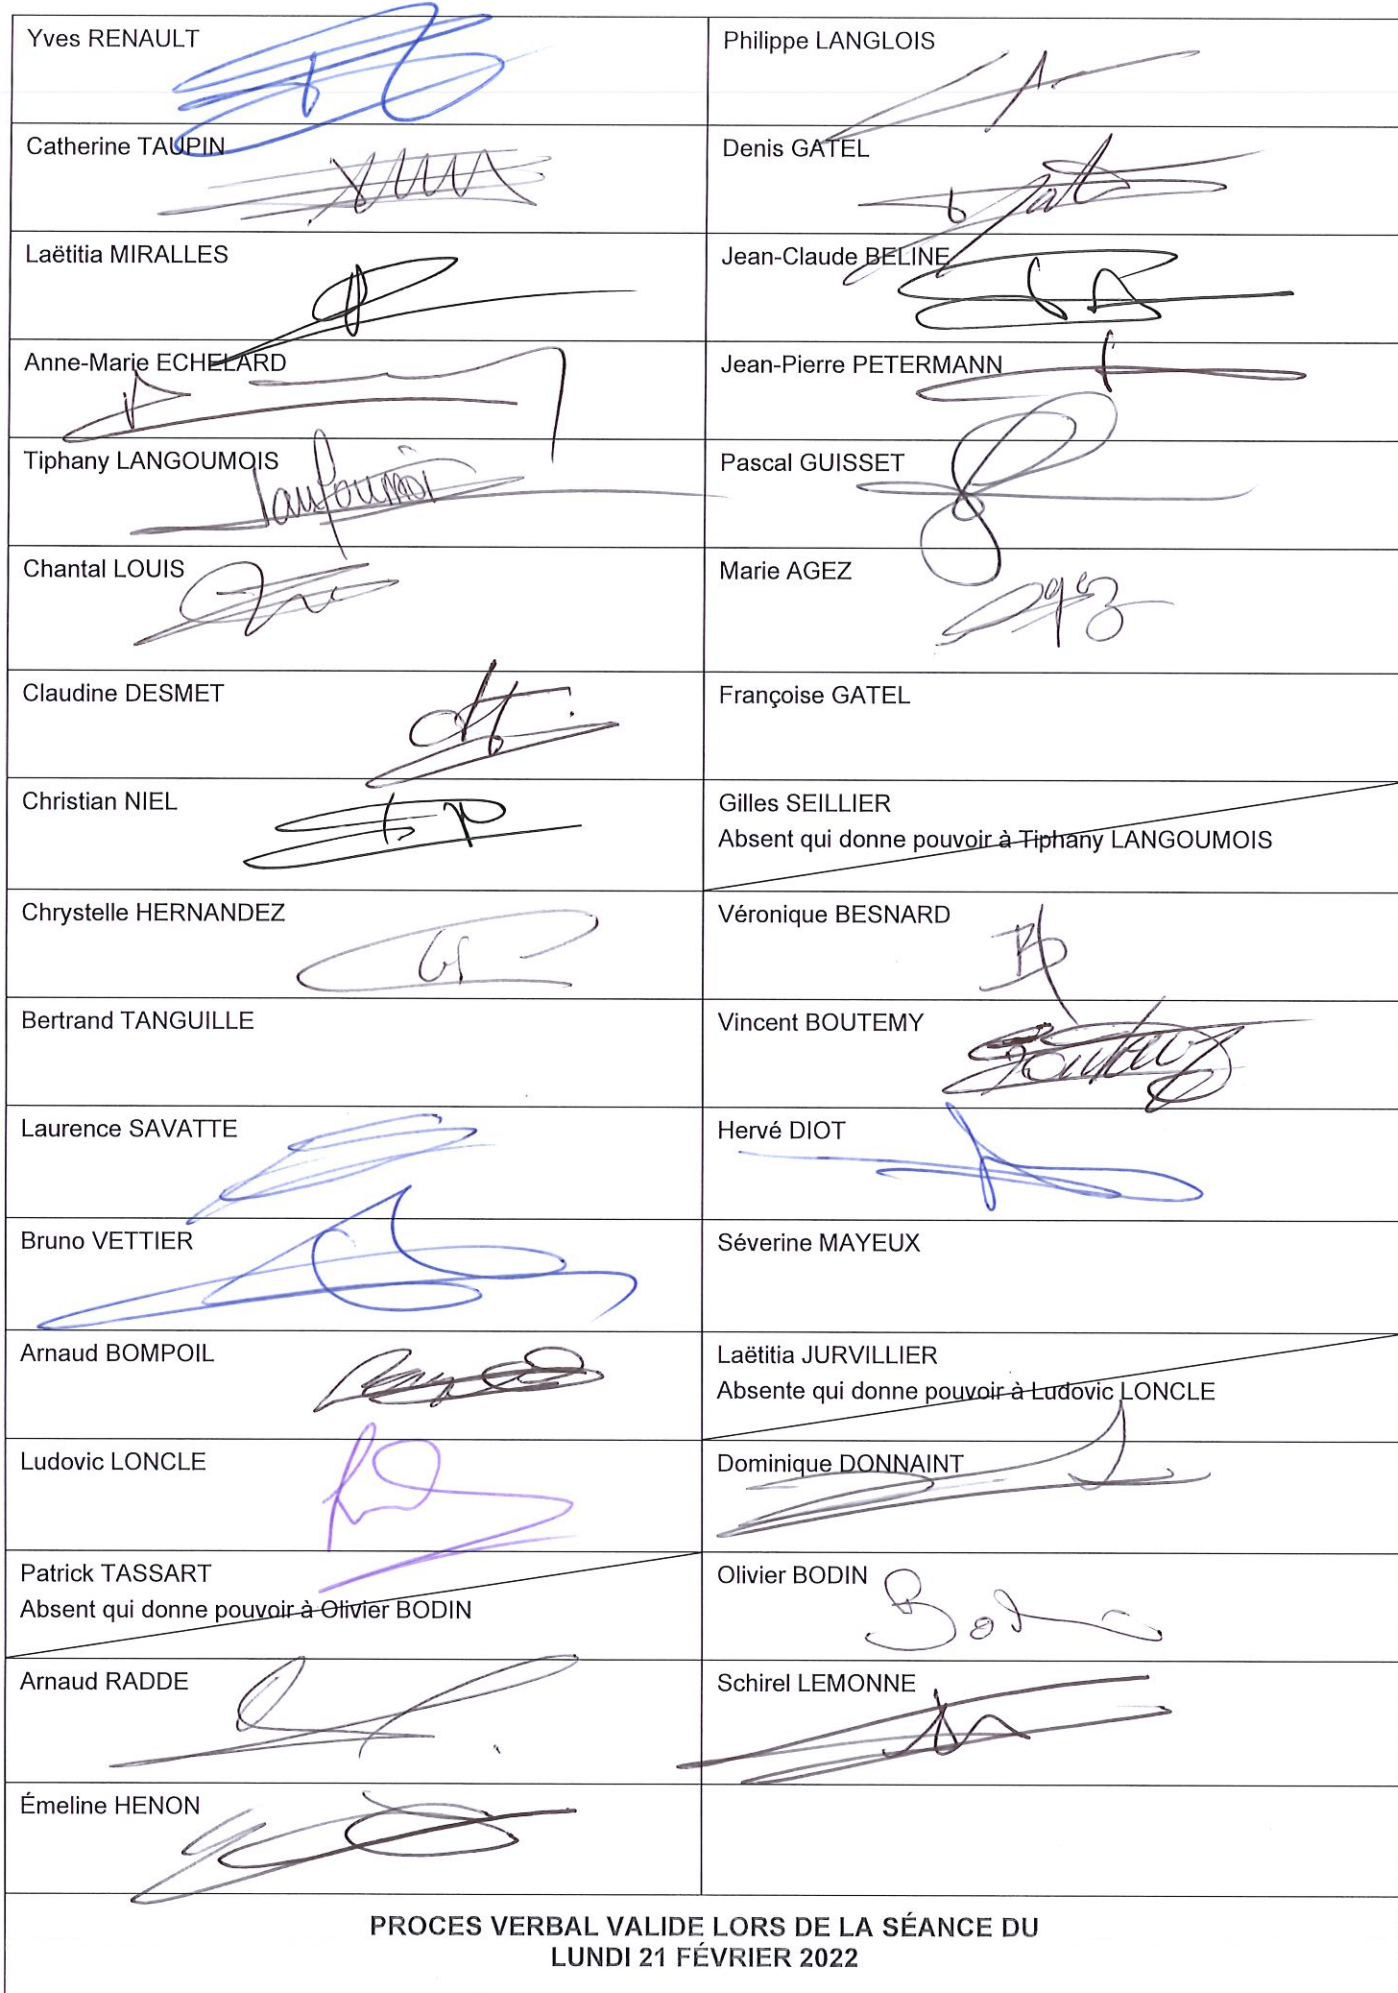 Yves RENAULT
Philippe LANGLOIS
Catherine TAUPIN
Denis GATEL
Laëtitia MIRALLES
Jean-Claude BELINE
Anne-Marie ECHELARD
Jean-Pierre PETERMANN
Tiphany LANGOUMOIS
Langoumois
Pascal GUISSET
Chantal LOUIS
Marie AGEZ
agez
Claudine DESMET
Françoise GATEL
Christian NIEL
Gilles SEILLIER
Absent qui donne pouvoir à Tiphany LANGOUMOIS
Chrystelle HERNANDEZ
Véronique BESNARD
Bertrand TANGUILLE
Vincent BOUTEMY
Boutemy
Laurence SAVATTE
Hervé DIOT
Bruno VETTIER
Séverine MAYEUX
Arnaud BOMPOIL
Laëtitia JURVILLIER
Absente qui donne pouvoir à Ludovic LONCLE
Ludovic LONCLE
Dominique DONNAINT
Patrick TASSART
Absent qui donne pouvoir à Olivier BODIN
Olivier BODIN
Bodin
Arnaud RADDE
Schirel LEMONNE
Émeline HENON
PROCES VERBAL VALIDE LORS DE LA SÉANCE DU
LUNDI 21 FÉVRIER 2022